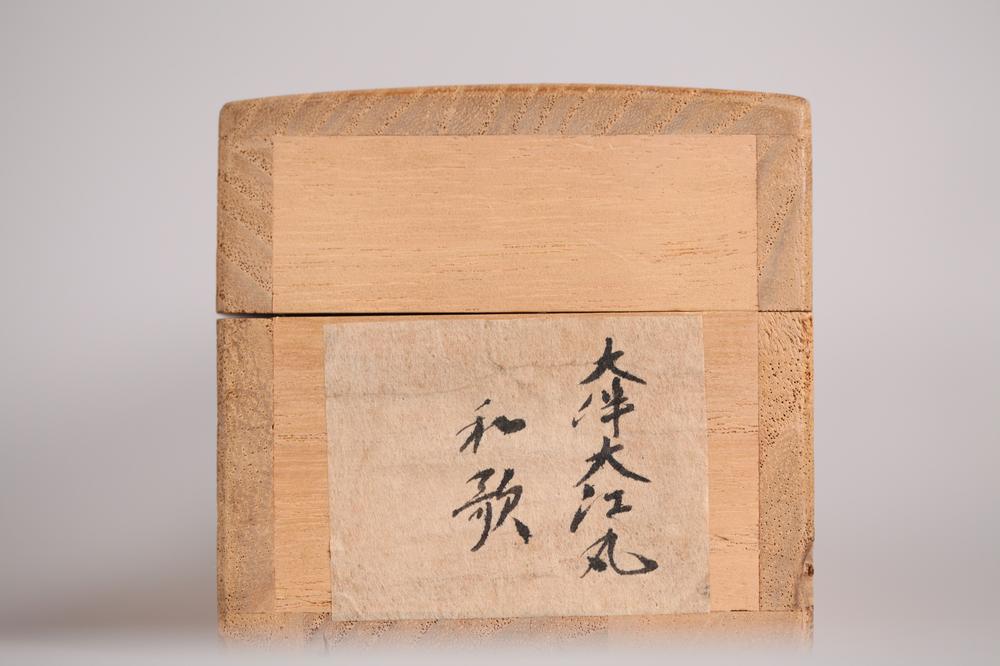 大伴大江丸
和歌